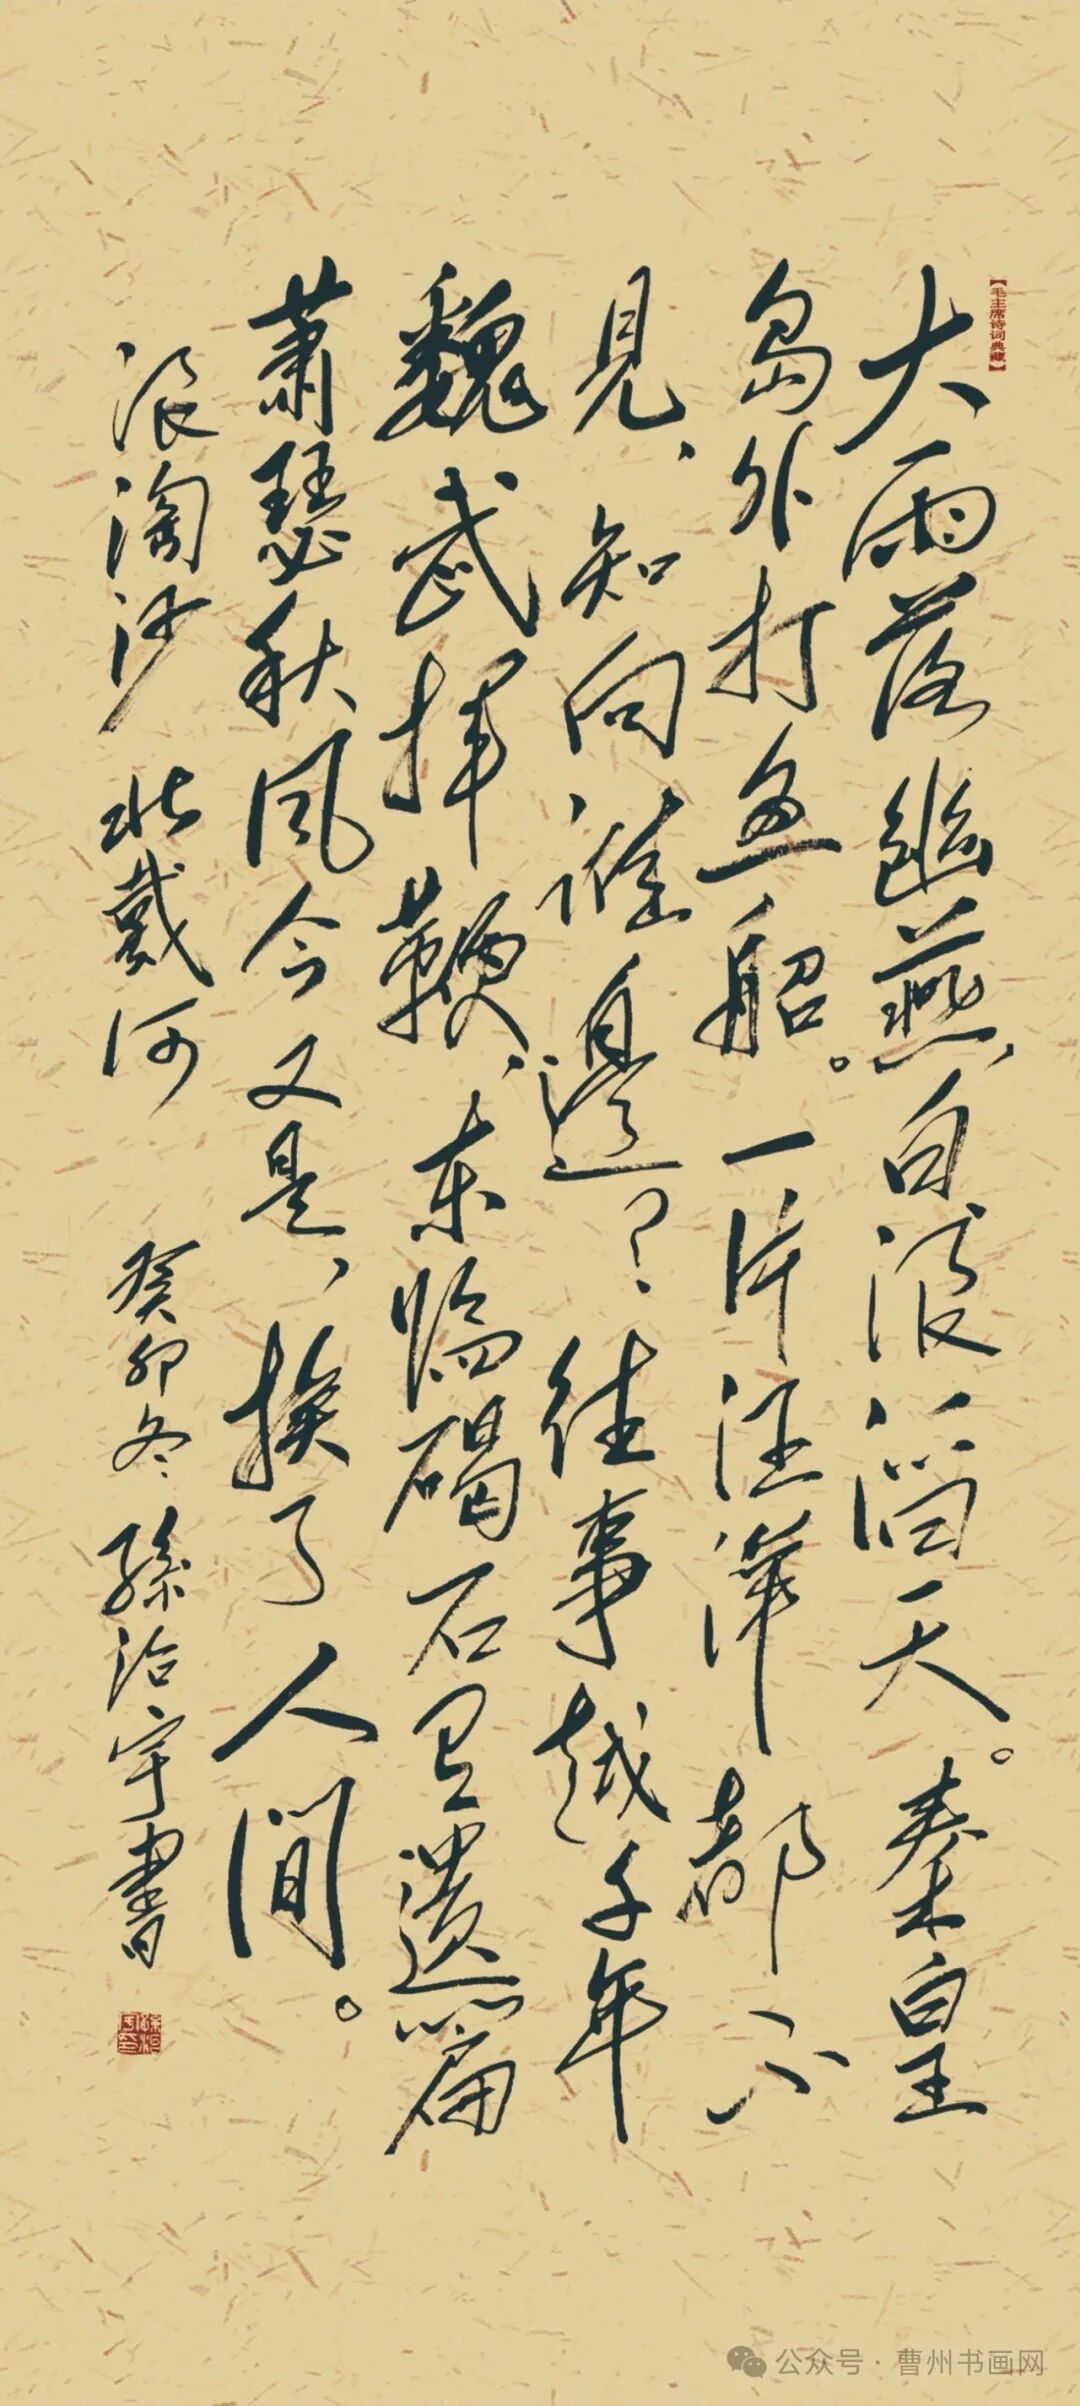 【毛主席诗词典藏】
大雨落幽燕,白浪滔天。秦皇
岛外打鱼船。一片汪洋都不
见、知向谁邊?往事越千年
魏武挥鞭、东临碣石有遗篇
萧瑟秋风今又是、换了人间。
浪淘沙 北戴河 癸卯冬 孫治宇書
公众号 · 曹州书画网